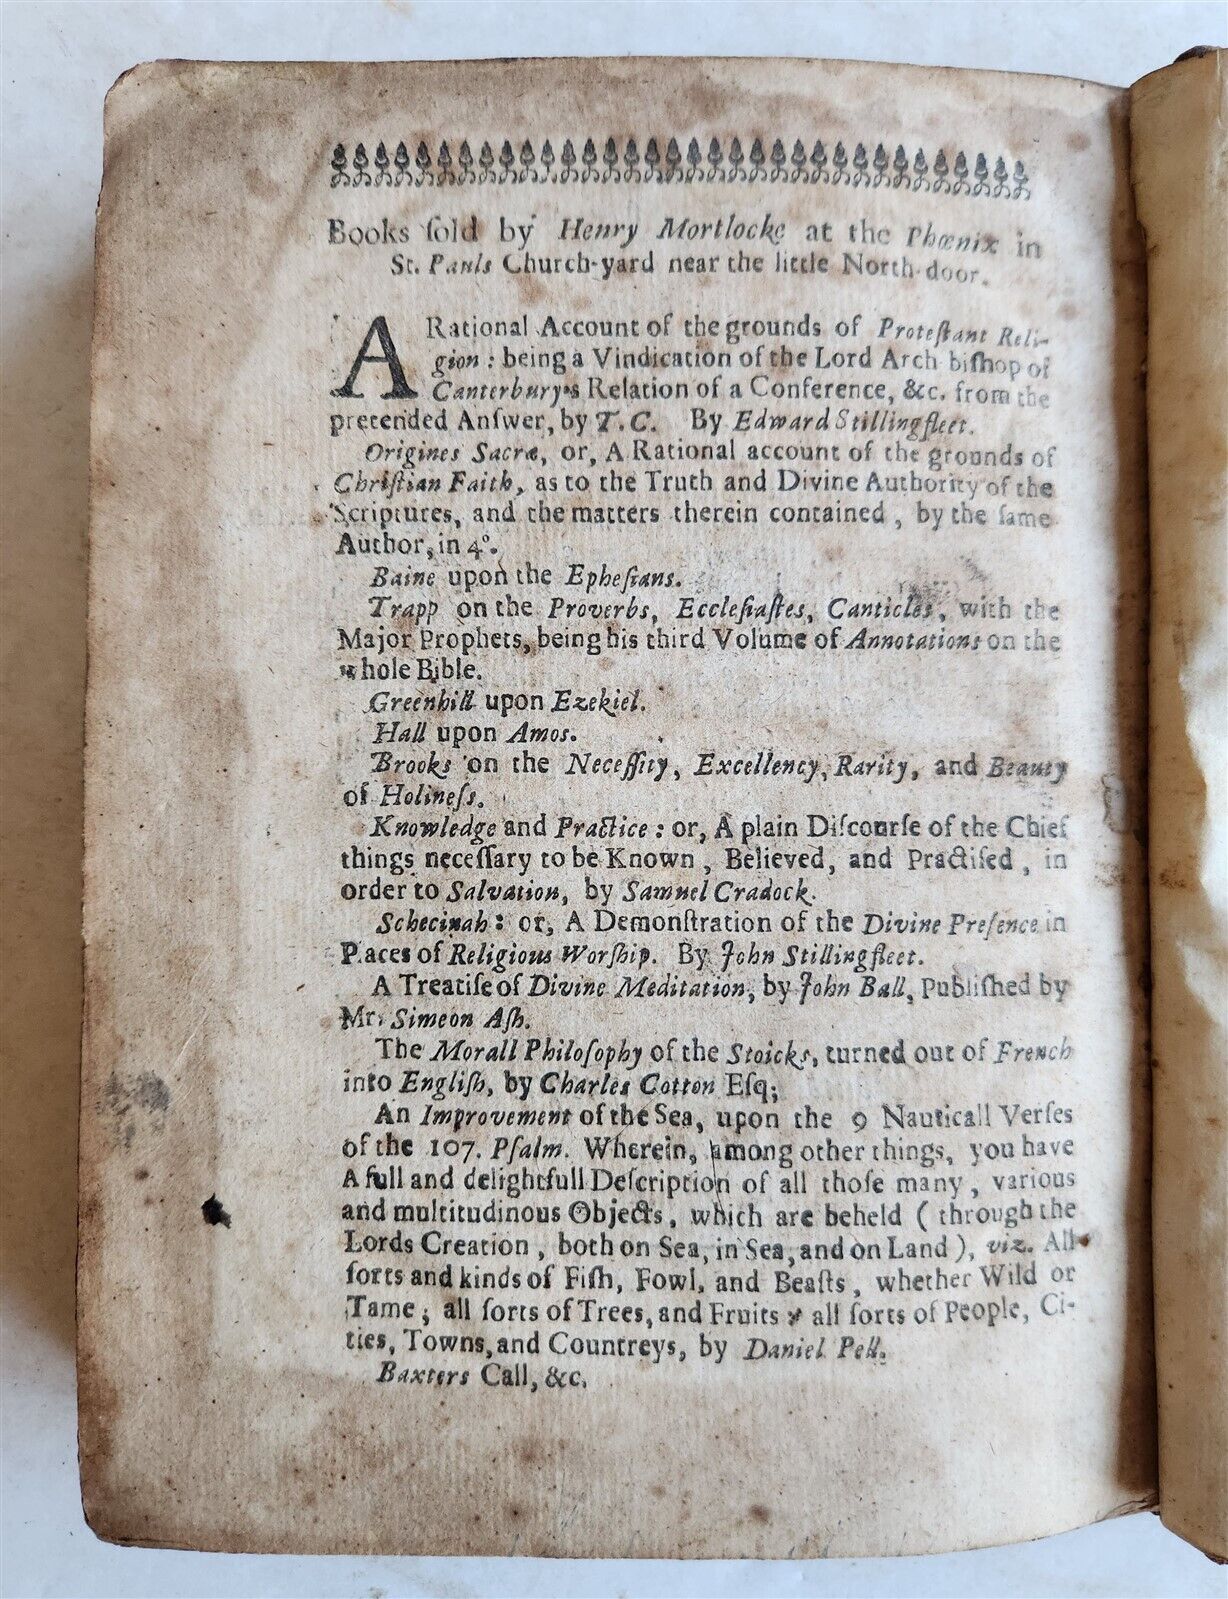 Books ſold by Henry Mortlocke at the Phœnix in
St. Pauls Church-yard near the little North-door.
A Rational Account of the grounds of Proteſtant Reli-
gion: being a Vindication of the Lord Arch-biſhop of
Canterbury's Relation of a Conference, &c. from the
pretended Anſwer, by T.C. By Edward Stillingfleet.
Origines Sacræ, or, A Rational account of the grounds of
Chriſtian Faith, as to the Truth and Divine Authority of the
Scriptures, and the matters therein contained, by the ſame
Author, in 4°.
Baine upon the Epheſians.
Trapp on the Proverbs, Eccleſiaſtes, Canticles, with the
Major Prophets, being his third Volume of Annotations on the
whole Bible.
Greenhill upon Ezekiel.
Hall upon Amos.
Brooks on the Neceſſity, Excellency, Rarity, and Beauty
of Holineſs.
Knowledge and Practice: or, A plain Diſcourſe of the Chief
things neceſſary to be Known, Believed, and Practiſed, in
order to Salvation, by Samuel Cradock.
Schecinah: or, A Demonſtration of the Divine Preſence in
Places of Religious Worſhip. By John Stillingfleet.
A Treatiſe of Divine Meditation, by John Ball, Publiſhed by
Mr. Simeon Aſh.
The Morall Philoſophy of the Stoicks, turned out of French
into Engliſh, by Charles Cotton Eſq;
An Improvement of the Sea, upon the 9 Nauticall Verſes
of the 107. Pſalm. Wherein, among other things, you have
A full and delightfull Deſcription of all thoſe many, various
and multitudinous Objects, which are beheld (through the
Lords Creation, both on Sea, in Sea, and on Land), viz. All
ſorts and kinds of Fiſh, Fowl, and Beaſts, whether Wild or
Tame; all ſorts of Trees, and Fruits; all ſorts of People, Ci-
ties, Towns, and Countreys, by Daniel Pell.
Baxters Call, &c.